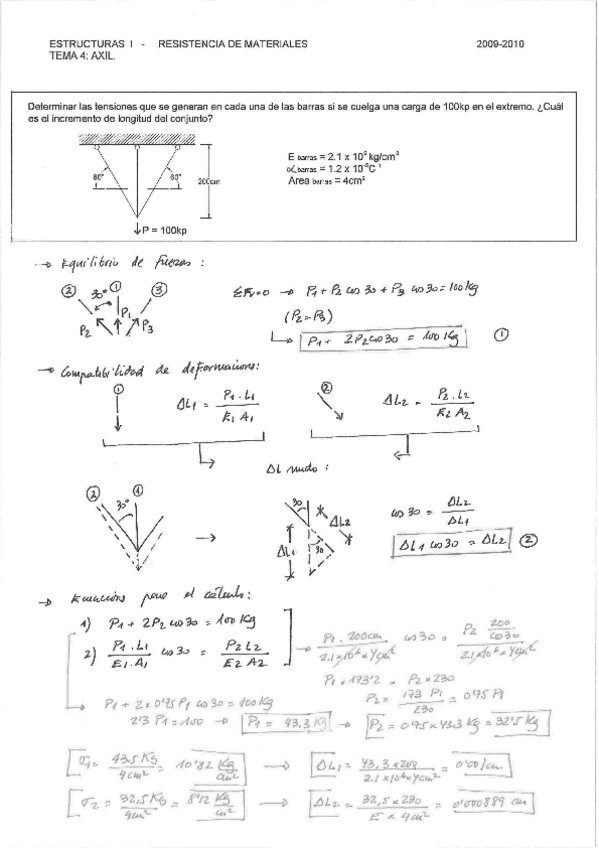 ESTRUCTURAS I - RESISTENCIA DE MATERIALES 2009-2010
TEMA 4: AXIL.
Determinar las tensiones que se generan en cada una de las barras si se cuelga una carga de 100kp en el extremo. ¿Cuál
es el incremento de longitud del conjunto?
E barras = 2.1 x 10⁶ kg/cm²
α barras = 1.2 x 10⁻⁵C⁻¹
Area barras = 4cm²
60° 60° 200cm
P = 100kp
→ Equilibrio de fuerzas:
② 30° ① ③
P2 P1 P3
ΣFv=0 → P1 + P2 cos 30 + P3 cos 30 = 100 Kg
(P2 = P3)
P1 + 2P2 cos 30 = 100 Kg ①
→ Compatibilidad de deformaciones:
① ΔL1 = P1 . L1 / E1 A1
② ΔL2 = P2 . L2 / E2 A2
ΔL nudo:
② 30° ①
→
30 ΔL2
ΔL1 30
cos 30 = ΔL2 / ΔL1
ΔL1 cos 30 = ΔL2 ②
→ Ecuaciones para el cálculo:
1) P1 + 2P2 cos 30 = 100 Kg
2) P1 . L1 / E1 . A1 cos 30 = P2 L2 / E2 A2
→ P1 . 200cm / 2.1x10⁶ x 4cm² cos 30 = P2 200/cos 30 / 2.1x10⁶ x 4cm²
P1 x 173'2 = P2 x 230
P1 + 2 x 0'75 P1 cos 30 = 100 Kg
P2 = 173 P1 / 230 = 0'75 P1
2'3 P1 = 100 → P1 = 43,3 Kg → P2 = 0'75 x 43,3 Kg = 32'5 Kg
σ1 = 43.5 KG / 4cm² = 10'82 Kg/cm² → ΔL1 = 43,3 x 200 / 2.1 x 10⁶ x 4cm² = 0'001 cm.
σ2 = 32,5 KG / 4cm² = 8'12 Kg/cm² → ΔL2 = 32,5 x 230 / E x 4cm² = 0'000889 cm